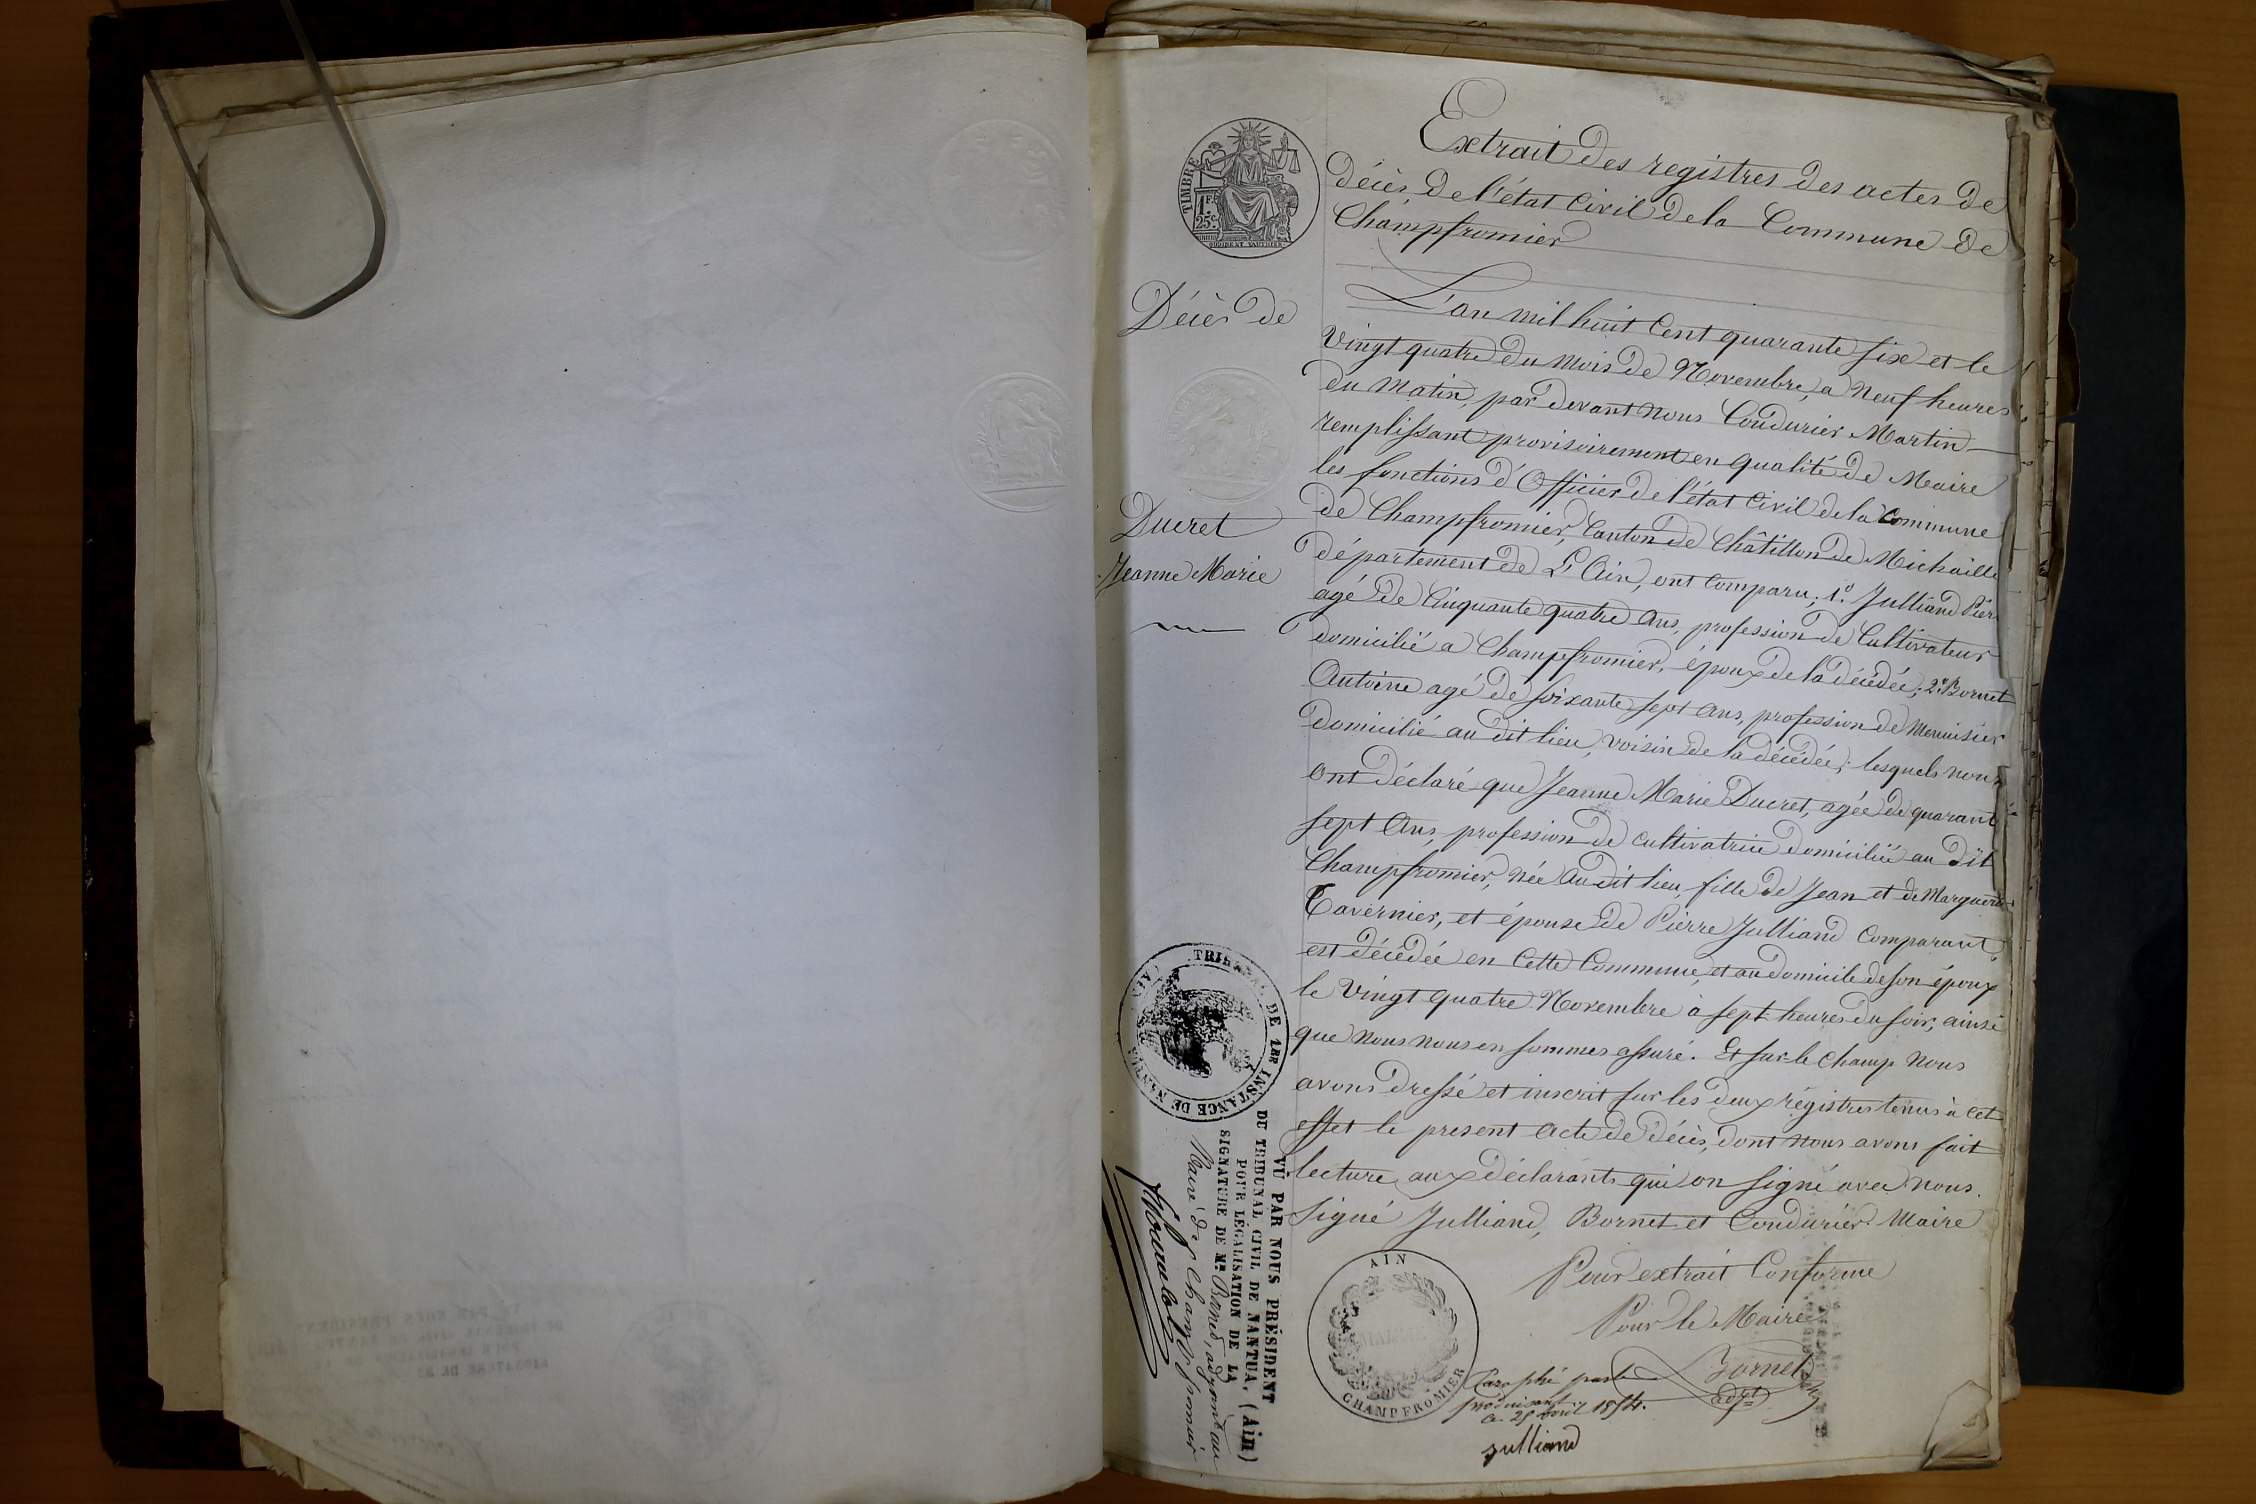 Extrait des registres des actes de
décès de l'état Civil de la Commune de
Champfromier
TIMBRE
1 F.
25 c.
Décès de
Ducret
Jeanne Marie
L'an mil huit Cent quarante six et le
Vingt quatre du Mois de Novembre, a Neuf heures
du Matin, par devant Nous Coudurier Martin
remplissant provisoirement en qualité de Maire
les fonctions d'Officier de l'état Civil de la Commune
de Champfromier, Canton de Châtillon de Michaille
département de L'Ain, ont Comparu; 1.º Julliand Pier
agé de Cinquante quatre Ans, profession de Cultivateur
domicilié a Champfromier, époux de la décédée; 2.º Bornet
Antoine agé de soixante sept Ans, profession de Menuisier
domicilié au dit lieu, voisin de la décédée; lesquels nous
ont déclaré que Jeanne Marie Ducret, agée de quarant
sept Ans, profession de cultivatrice domiciliée au dit
Champfromier, née Au dit lieu, fille de Jean et de Marguerite
Tavernier, et épouse de Pierre Julliand Comparant,
est décédée en Cette Commune, et au domicile de son époux
le Vingt quatre Novembre à sept heures du soir, ainsi
que Nous nous en sommes assuré. Et sur-le Champ Nous
avons dressé et inscrit sur les deux régistres tenus à cet
effet le present Acte de décès, dont Nous avons fait
lecture aux déclarants qui on signé avec Nous.
Signé Julliand, Bornet et Coudurier Maire
Pour extrait Conforme
Pour le Maire
Bornet
adjt
AIN
MAIRIE
CHAMPFROMIER
Paraphé par le
produisant
Ce 25 avril 1874.
Julliand
TRIBUNAL DE 1RE INSTANCE DE NANTUA (AIN)
VU PAR NOUS PRÉSIDENT
DU TRIBUNAL CIVIL DE NANTUA, (Ain)
POUR LÉGALISATION DE LA
SIGNATURE DE Mr. Bornet, adjoint au
Maire de Champfromier